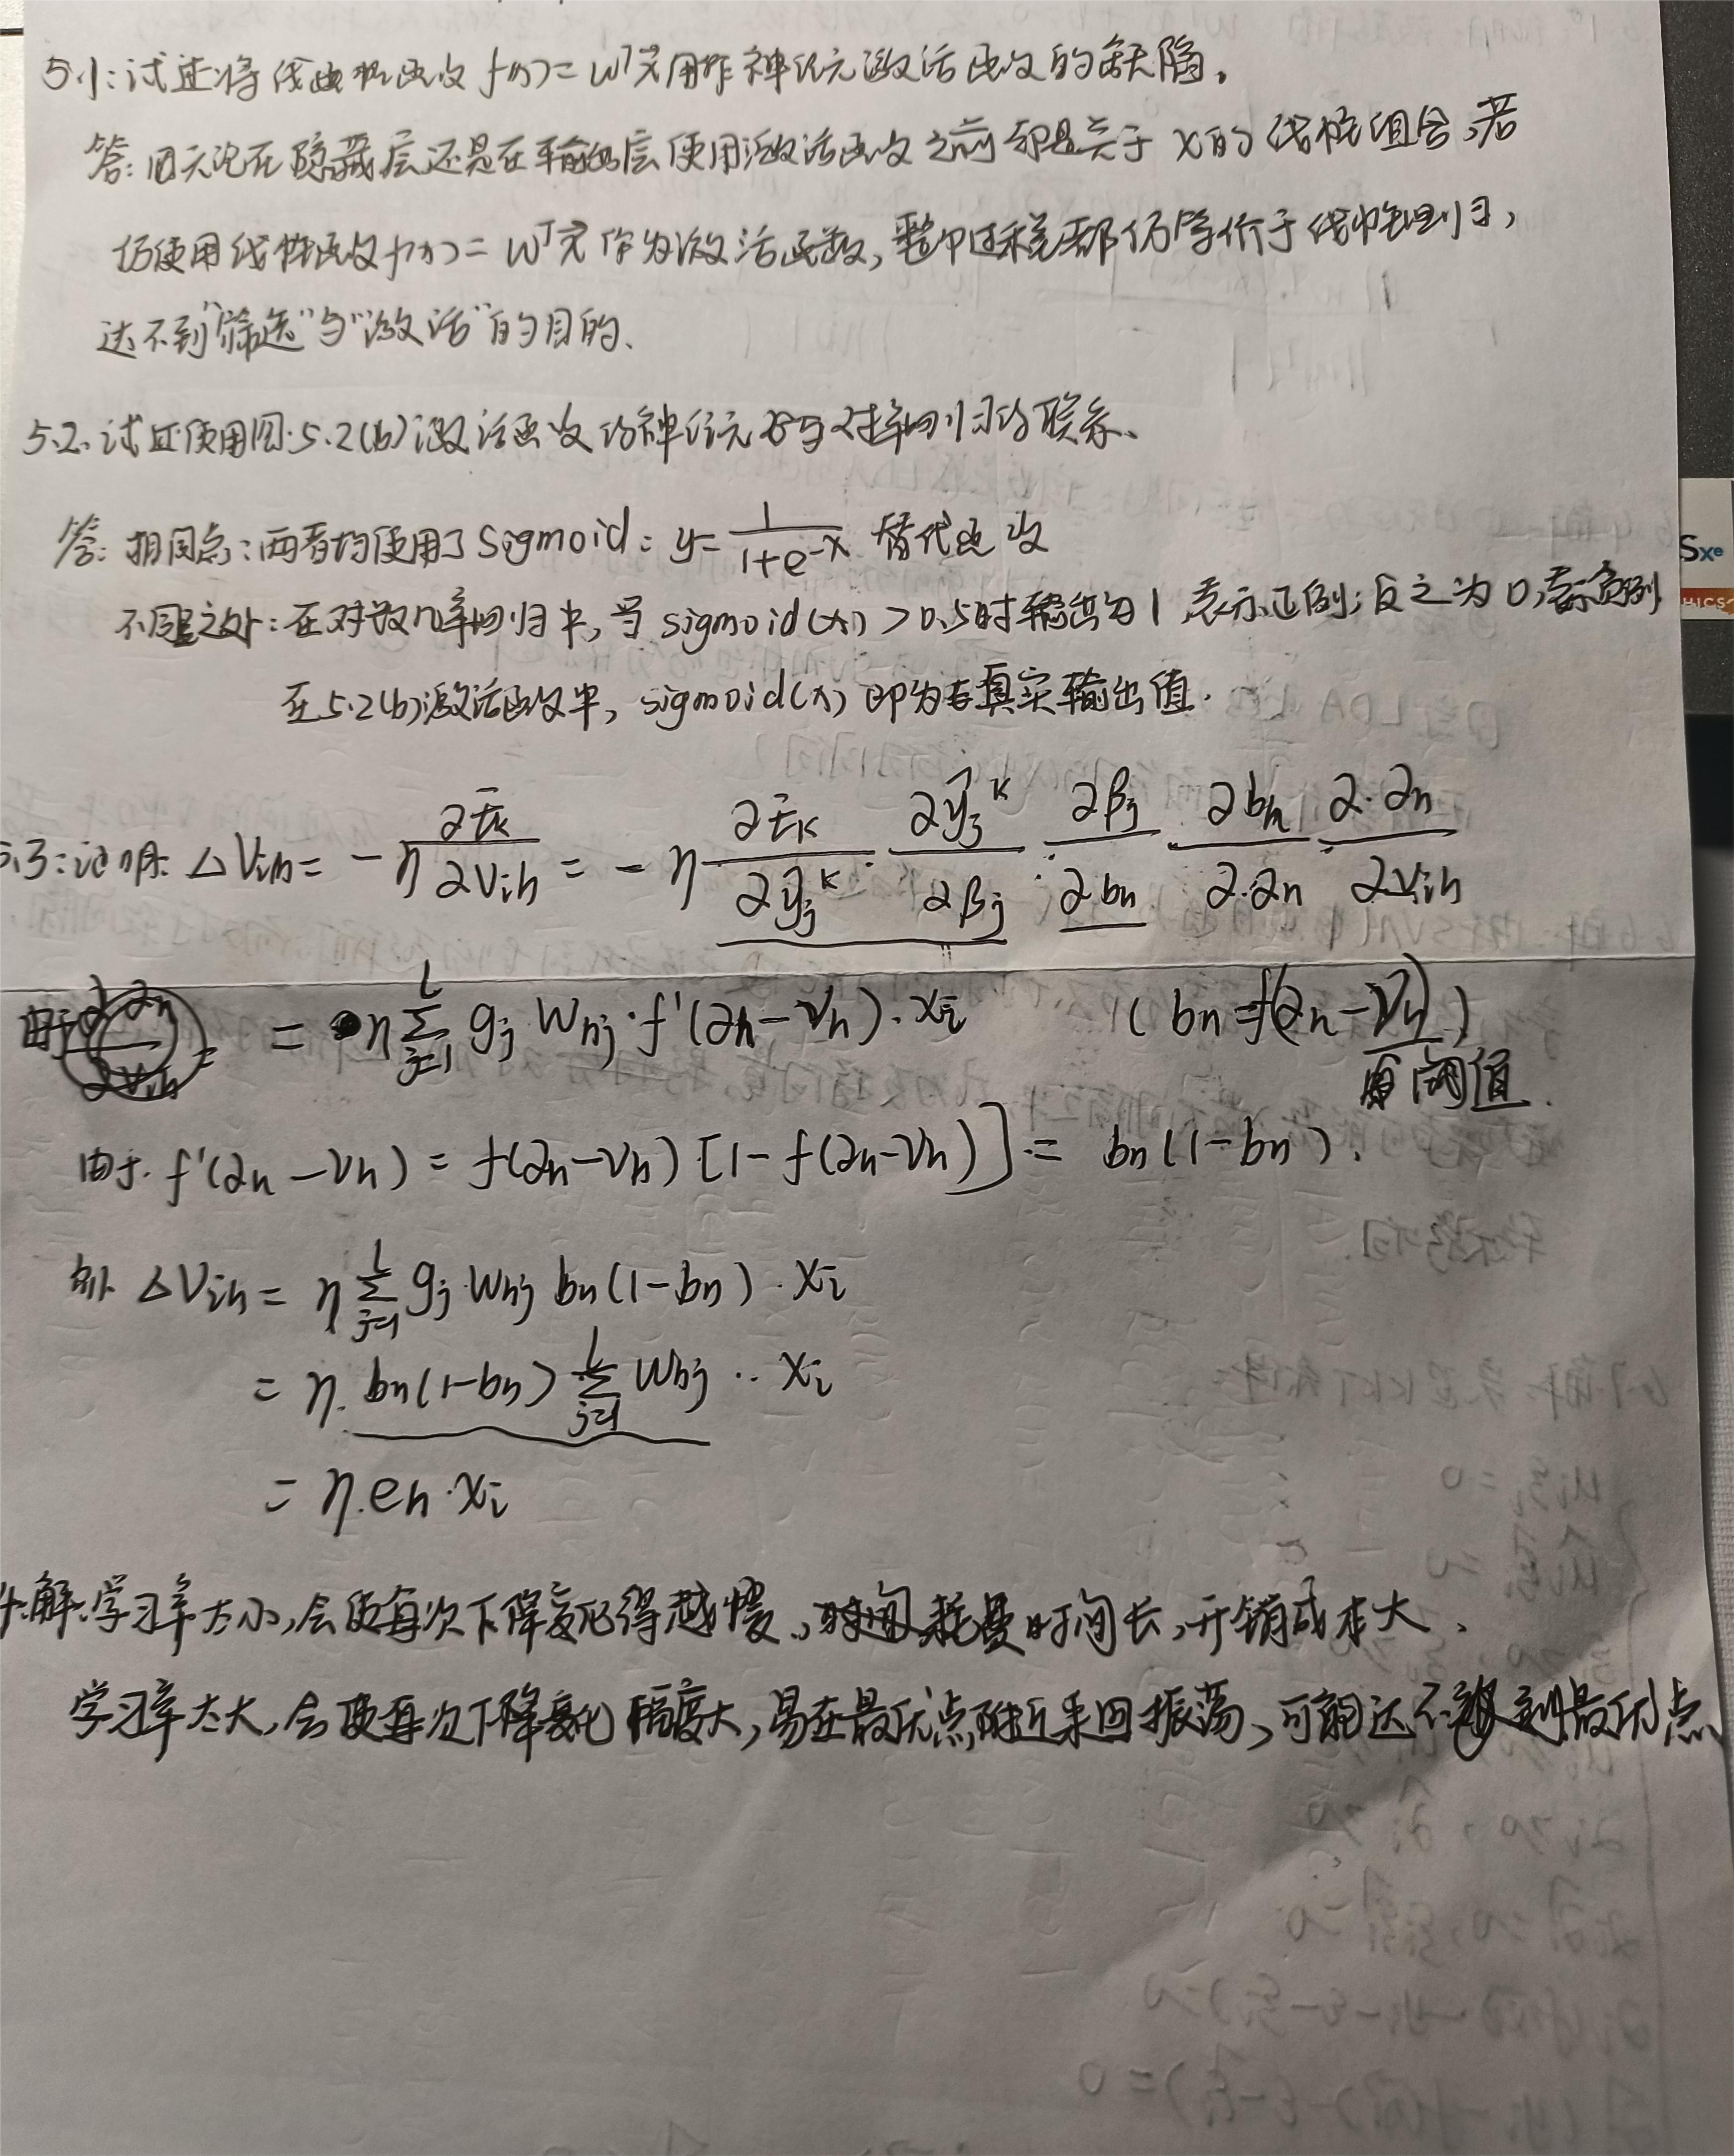 5.1: 试述将线性函数 f(x) = wᵀx 用作神经元激活函数的缺陷.
答: 因无论在隐藏层还是在输出层使用激活函数之前都是关于 x 的线性组合, 若
仍使用线性函数 f(x) = wᵀx 作为激活函数, 整个过程都仍等价于线性回归,
达不到"筛选"与"激活"的目的.
5.2. 试述使用图 5.2(b) 激活函数的神经元与对率回归的联系.
答: 相同点: 两者均使用了 Sigmoid: y = 1/(1+e^-x) 替代函数
不同之处: 在对数几率回归中, 当 sigmoid(x) > 0.5时输出为 1, 表示正例; 反之为 0, 表示负例
在 5.2(b) 激活函数中, sigmoid(x) 即为真实输出值.
5.3: 证明: ΔVih = -η ∂Ek/∂Vih = -η ∂Ek/∂ŷj^k · ∂ŷj^k/∂βj · ∂βj/∂bh · ∂bh/∂αh · ∂αh/∂Vih
= η Σ_{j=1}^{l} gj Whj · f'(αh - γh) · xi (bh = f(αh - γh))
阈值.
由于 f'(αh - γh) = f(αh - γh) [1 - f(αh - γh)] = bh(1 - bh).
ΔVih = η Σ_{j=1}^{l} gj · Whj bh(1 - bh) · xi
= η · bh(1 - bh) Σ_{j=1}^{l} Whj · · xi
= η · eh · xi
解: 学习率太小, 会使每次下降变化得越慢, 耗费时间长, 开销成本大.
学习率太大, 会使每次下降变化幅度大, 易在最优点附近来回振荡, 可能达不到最优点
Sxe
HICS